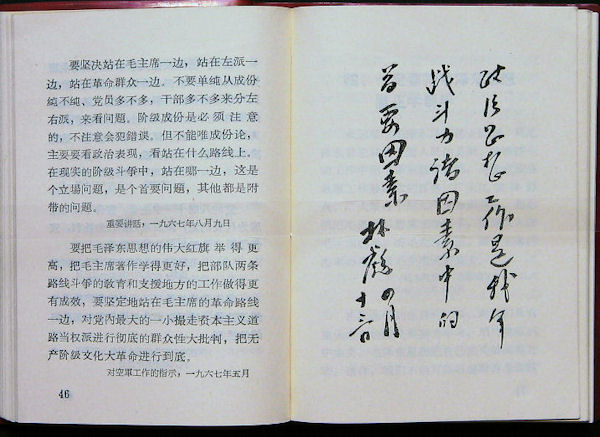 要坚决站在毛主席一边，站在左派一
边，站在革命群众一边。不要单纯从成份
纯不纯、党员多不多，干部多不多来分左
右派，来看问题。阶级成份是必须注意
的，不注意会犯错误。但不能唯成份论，
主要要看政治表现，看站在什么路线上。
在现实的阶级斗争中，站在哪一边，这是
个立場问题，是个首要问题，其他都是附
带的问题。
重要讲話，一九六七年八月九日
要把毛泽东思想的伟大红旗举得更
高，把毛主席著作学得更好，把部队两条
路线斗争的教育和支援地方的工作做得更
有成效，要坚定地站在毛主席的革命路线
一边，对党内最大的一小撮走资本主义道
路当权派进行彻底的群众性大批判，把无
产阶级文化大革命进行到底。
对空軍工作的指示，一九六七年五月
46
政治思想工作是我军
战斗力诸因素中的
首要因素 林彪 四月